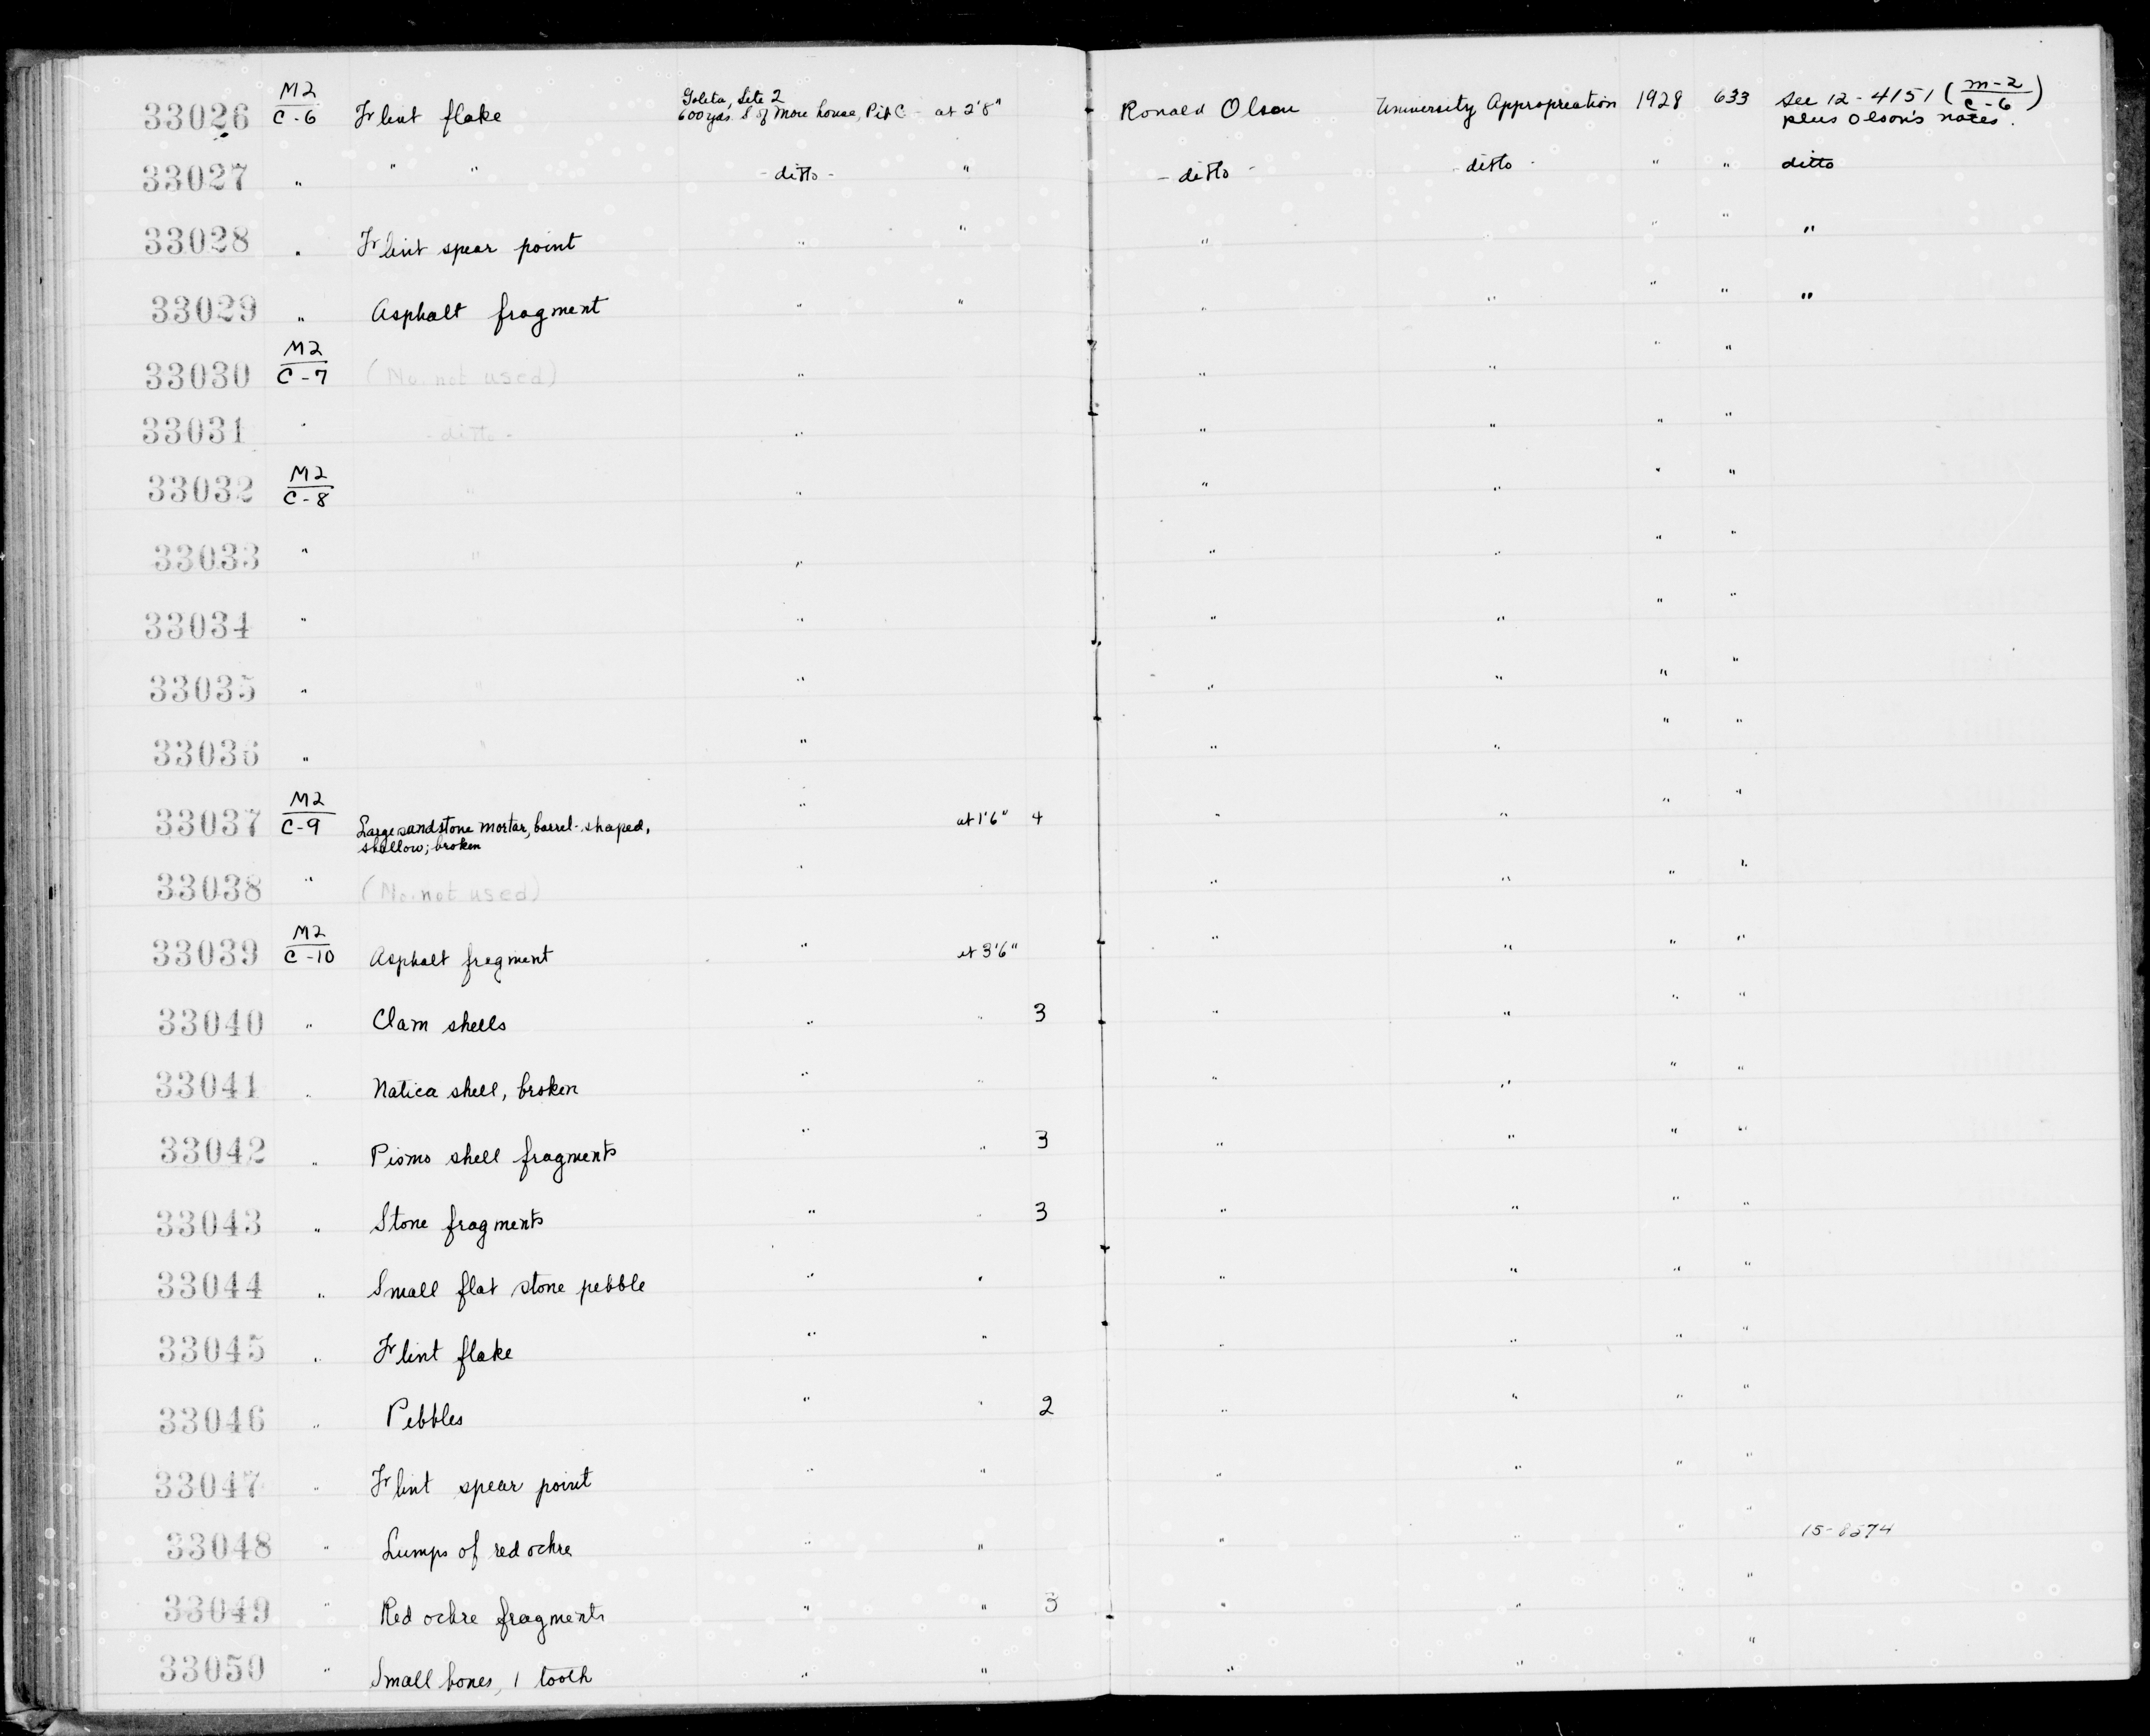 33026 M2/C-6 Flint flake Goleta, Site 2 600 yds. S of More house, Pit C - at 2'8" Ronald Olson University Appropreation 1928 633 See 12-4151 (M-2/C-6) plus Olson's notes.
33027 " " " - ditto - " - ditto - - ditto - " " ditto
33028 " Flint spear point " " " " " " "
33029 " Asphalt fragment " " " " " " "
33030 M2/C-7 (No. not used) " " " " "
33031 " - ditto - " " " " "
33032 M2/C-8 " " " " " "
33033 " " " " " " "
33034 " " " " " "
33035 " " " " " " "
33036 " " " " " " "
33037 M2/C-9 Large sandstone mortar, barrel-shaped, shallow; broken " at 1'6" 4 " " " "
33038 " (No. not used) " " " " "
33039 M2/C-10 Asphalt fragment " at 3'6" " " " "
33040 " Clam shells " " 3 " " " "
33041 " Natica shell, broken " " " " " "
33042 " Pismo shell fragments " " 3 " " " "
33043 " Stone fragments " " 3 " " " "
33044 " Small flat stone pebble " " " " " "
33045 " Flint flake " " " " " "
33046 " Pebbles " " 2 " " " "
33047 " Flint spear point " " " " " "
33048 " Lumps of red ochre " " " " " " 15-8274
33049 " Red ochre fragments " " 3 " " " "
33050 " Small bones, 1 tooth " " " " "